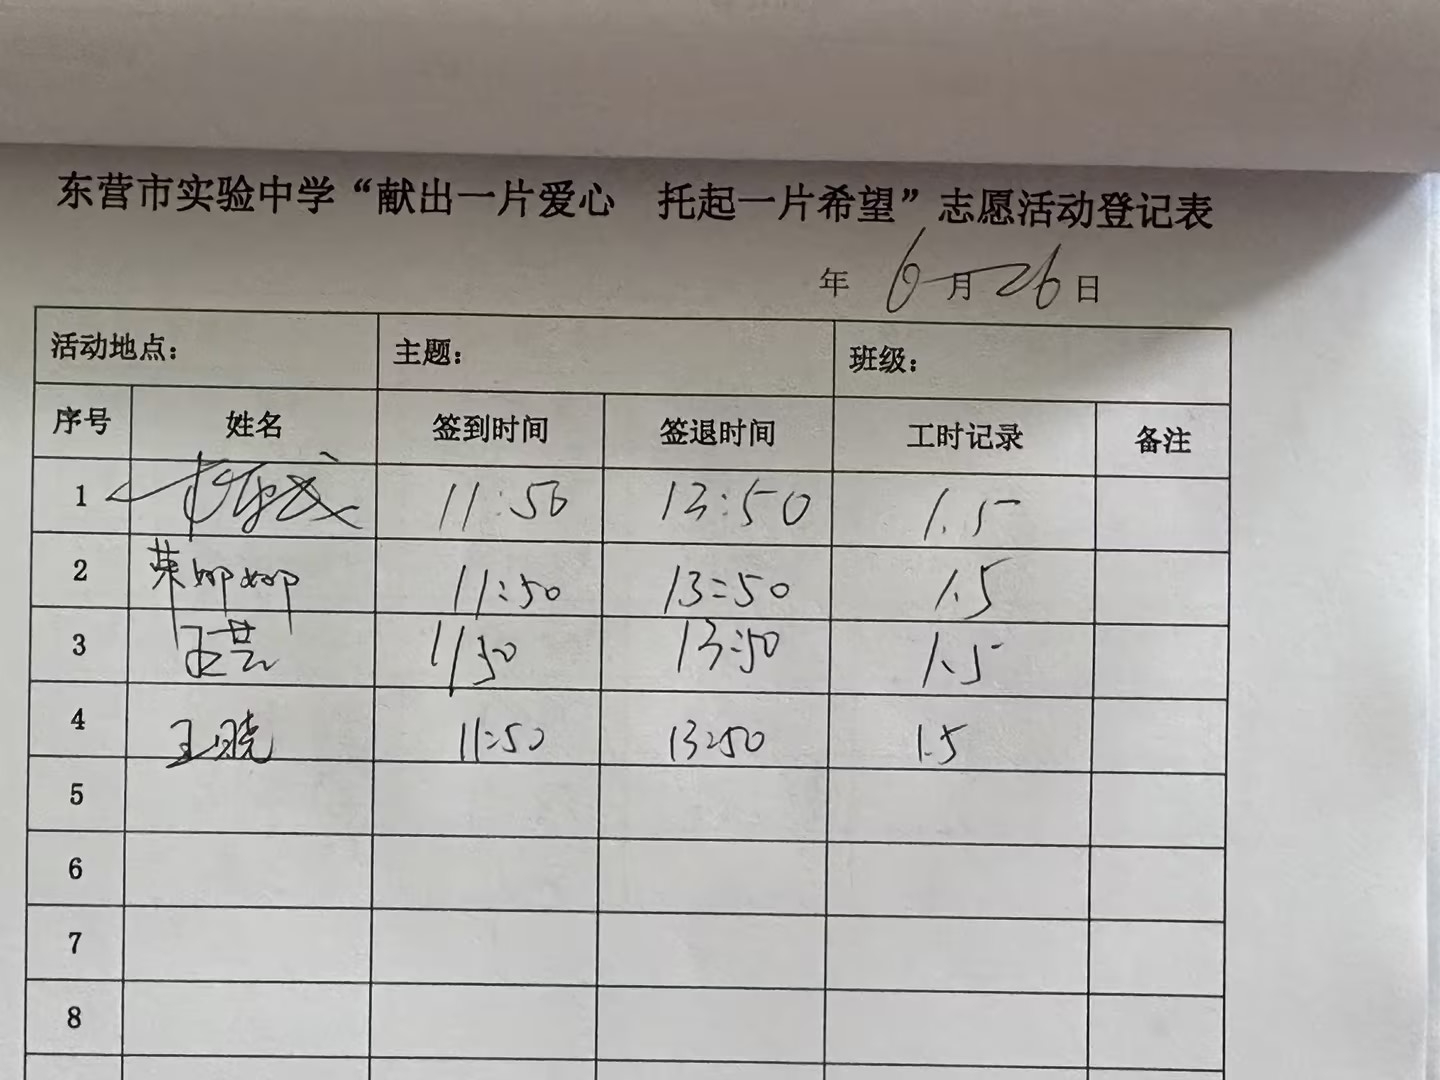 东营市实验中学“献出一片爱心 托起一片希望”志愿活动登记表
年 6月26日
活动地点： 主题： 班级：
序号 姓名 签到时间 签退时间 工时记录 备注
1 11:50 13:50 1.5
2 11:50 13:50 1.5
3 王芸 1150 13:50 1.5
4 王晓 11:50 13:50 1.5
5
6
7
8